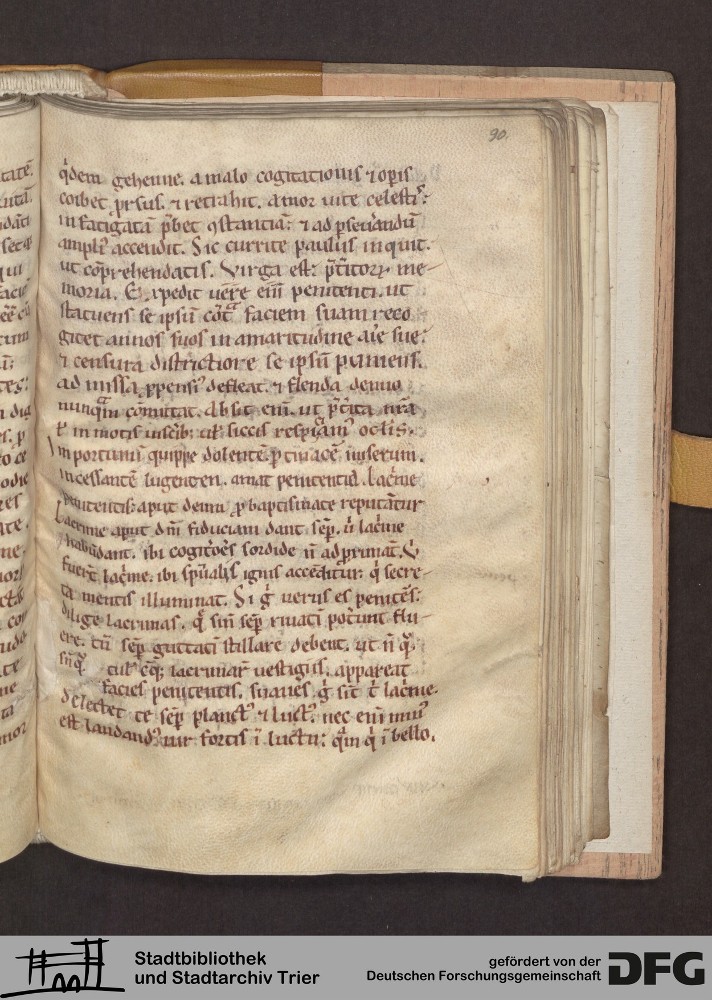 90.
q̇dem gehenne. a malo cogitationis ⁊ op̄is
cohibet p̱rsus. ⁊ retrahit. amor uite celestis:
infatigatā p̄bet ꝯstantiā: ⁊ ad pseuandū
ampli᷒ accendit. Sic currite paulus inquit.
ut cōprehendatis. Virga est: p̄titorꝝ me-
moria. Expedit uēre eni penitenti. ut
statuens se ipsū cōt faciem suam reco
gitet annos suos in amaritudine aīe sue:
⁊ censura districtiore se ipsū puniens.
ad missa ppensi᷒ defleat. ⁊ flenda denuo
nunꝗm cōmittat. Absit eni. ut p̄tita nrā
in motis uiscib;
siccis respiciam᷒ oclis.
Importunū quippe dolentē
miserum.
incessantē lugentem. amat penitentia. Lac̄me
penitentis: aput deum p̱ baptismate reputāntur
Lacrime aput dm̄ fiduciam dant sēp. ū lac̄me
habūdant. ibi cogit̄oēs sordide ñ adpriman̄t. V̇
fuerīt lac̄me. ibi sp̄ualis ignis accēditur: q̇ secre-
ta mentis illuminat. Si ġ uerus es penitēs:
dilige lacrimas. q̄ sin̄ sēp riuati potūnt flu-
ere. tn̄ sēp guttati stillare debent. ut ñ q̄.
sinq̄. cul
lacrimar̄ uestigiis. appareat
facies penitentis. suaues ġ sūt t̄ lac̄me.
Delectet te sēp planct᷒ ⁊ luct᷒. nec eni min᷒
est laudand᷒ uir fortis ī luctu: q̄m q̇ ī bello.
Stadtbibliothek
und Stadtarchiv Trier
gefördert von der
Deutschen Forschungsgemeinschaft DFG